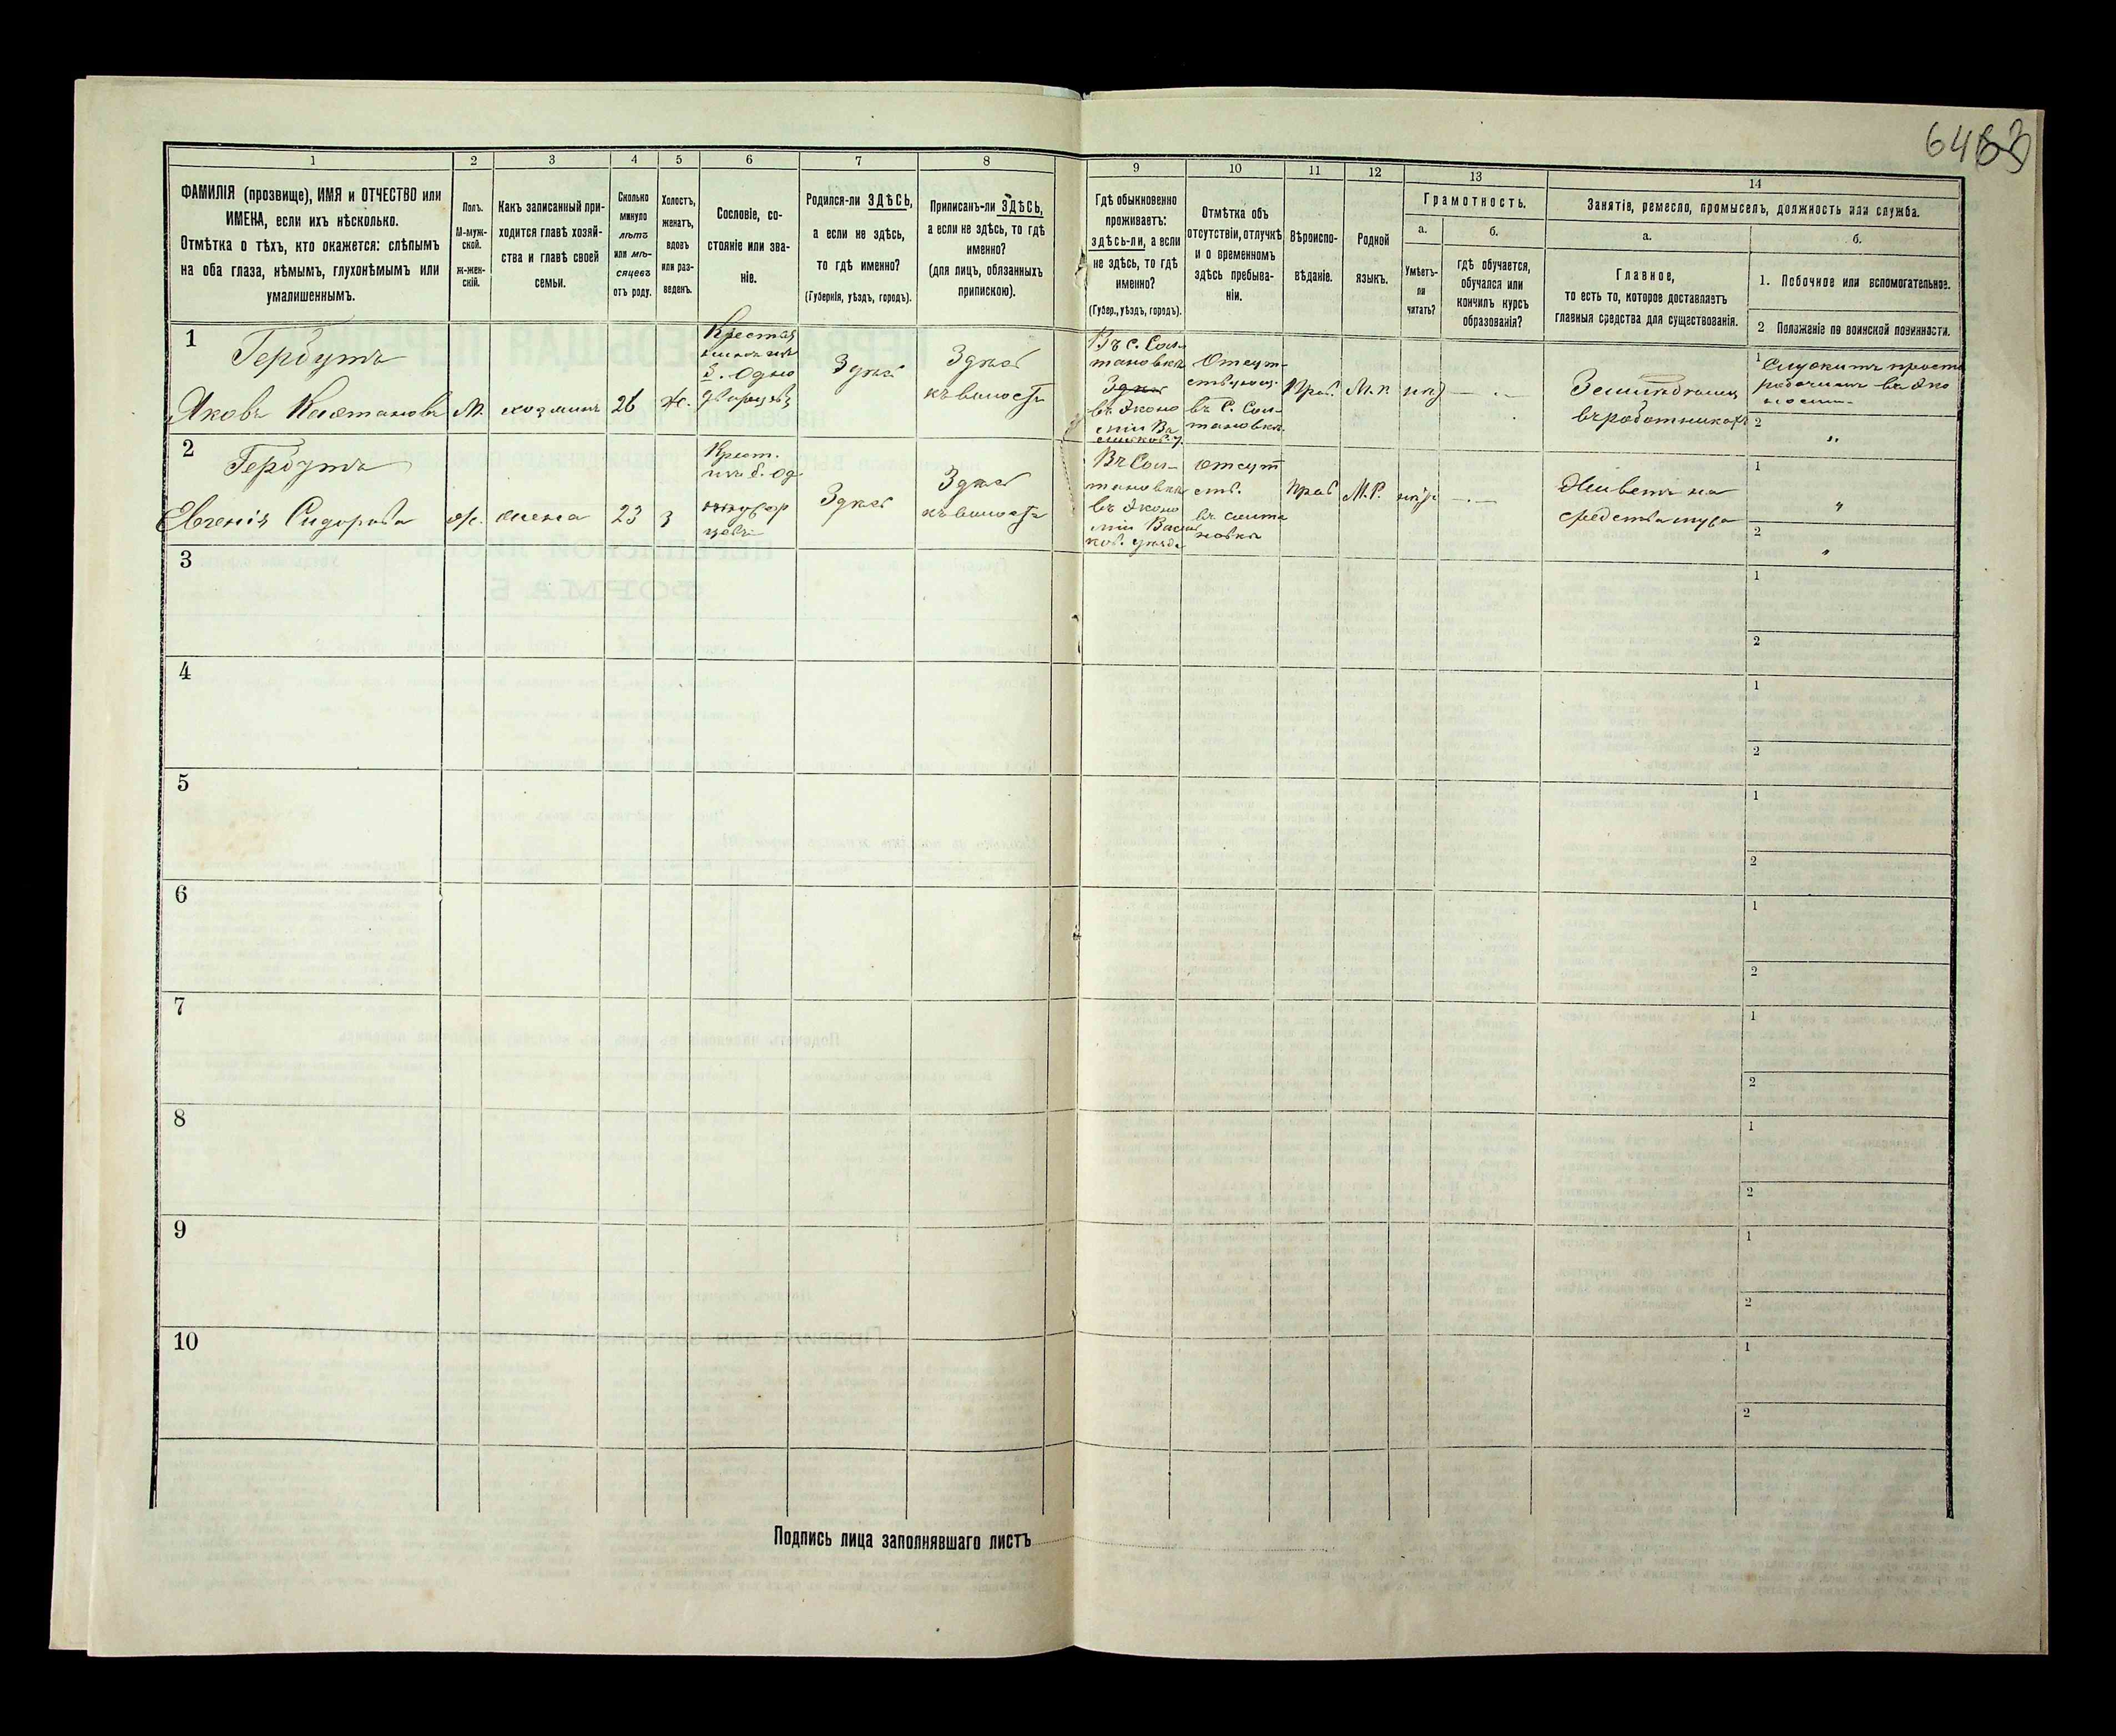 64
1
2
3
4
5
6
7
8
9
10
11
12
13
14
ФАМИЛІЯ (прозвище), ИМЯ и ОТЧЕСТВО или
ИМЕНА, если ихъ нѣсколько.
Отмѣтка о тѣхъ, кто окажется: слѣпымъ
на оба глаза, нѣмымъ, глухонѣмымъ или
умалишеннымъ.
Полъ.
М-муж-
ской.
ж-жен-
скій.
Какъ записанный при-
ходится главѣ хозяй-
ства и главѣ своей
семьи.
Сколько
минуло
лѣтъ
или мѣ-
сяцевъ
отъ роду.
Холостъ,
женатъ,
вдовъ
или раз-
веденъ.
Сословіе, со-
стояніе или зва-
ніе.
Родился-ли ЗДѢСЬ,
а если не здѣсь,
то гдѣ именно?
(Губернія, уѣздъ, городъ).
Приписанъ-ли ЗДѢСЬ,
а если не здѣсь, то гдѣ
именно?
(для лицъ, обязанныхъ
припискою).
Гдѣ обыкновенно
проживаетъ:
здѣсь-ли, а если
не здѣсь, то гдѣ
именно?
(Губер., уѣздъ, городъ).
Отмѣтка объ
отсутствіи, отлучкѣ
и о временномъ
здѣсь пребыва-
ніи.
Вѣроиспо-
вѣданіе.
Родной
языкъ.
Грамотность.
а.
Умѣетъ-
ли
читать?
б.
гдѣ обучается,
обучался или
кончилъ курсъ
образованія?
Занятіе, ремесло, промыселъ, должность или служба.
а.
Главное,
то есть то, которое доставляетъ
главныя средства для существованія.
б.
1. Побочное или вспомогательное.
2 Положеніе по воинской повинности.
1
Гербутъ
Яковъ
М.
хозяинъ
26
ж.
Крестья
нинъ изъ
б. Одно
дворцевъ
Здѣсь
Здѣсь
къ волости
Въ с. Сол
тановкѣ
Здѣсь
въ Эконо
міи Ва
сильков. у.
Отсут-
ствующ.
въ С. Сол-
тановкѣ
Прав.
М. Р.
нѣт
Земледѣлецъ
въ работникахъ
1 Служитъ просты
рабочимъ въ Эко
номіи
2 "
2
Гербутъ
Евгенія Сидорова
ж.
жена
23
з
Крест.
изъ б. Од
нодвор
цевъ
Здѣсь
Здѣсь
къ волости
Въ Сол-
тановкѣ
въ Эконо
міи Васил
ков. уѣзда
Отсут
ств.
въ Солта
новкѣ
Прав
М. Р.
нѣт
Живетъ на
средства мужа
1 "
2 "
3
1
2
4
1
2
5
1
2
6
1
2
7
1
2
8
1
2
9
1
2
10
1
2
Подпись лица заполнявшаго листъ